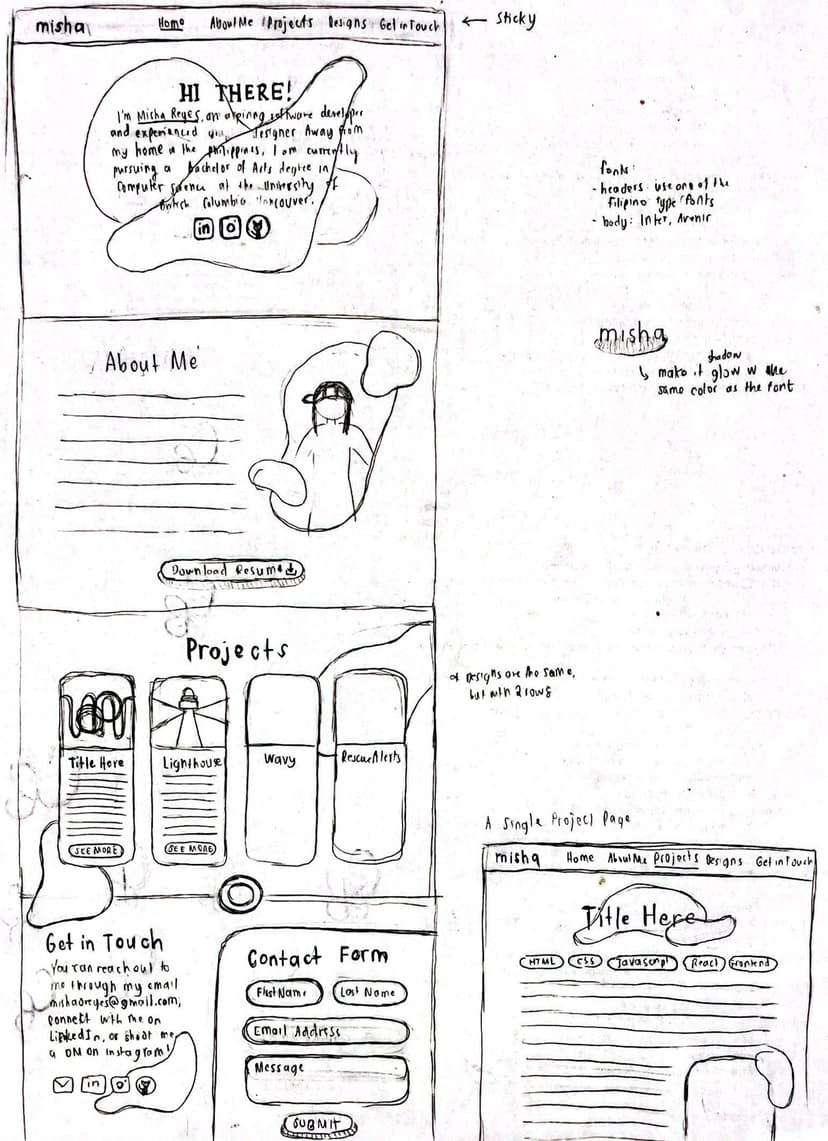 misha Home About Me Projects Designs Get in Touch
← Sticky
HI THERE!
I'm Misha Reyes, an software developer
and experienced designer Away from
my home in the Philippines, I am currently
pursuing a Bachelor of Arts degree in
Computer Science at the University of
British Columbia Vancouver.
in
fonts:
- headers: use one of the
Filipino type fonts
- body: Inter, Avenir
misha
shadow
↳ make it glow w the
same color as the font
About Me
Download Resume
Projects
Title Here
SEE MORE
Lighthouse
SEE MORE
Wavy
RescueAlerts
Designs are the same,
but with 2 rows
Get in Touch
You can reach out to
me through my email
@gmail.com,
connect with me on
LinkedIn, or shoot me
a DM on Instagram!
in
Contact Form
First Name Last Name
Email Address
Message
SUBMIT
A Single Project Page
misha Home About Me Projects Designs Get in Touch
Title Here
HTML CSS Javascript React Frontend